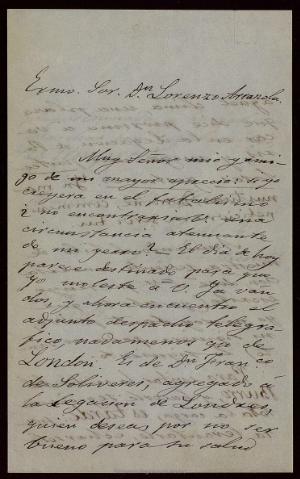 Exmo. Sor. Dn. Lorenzo Arrazola.
Muy Señor mio y ami-
go de mi mayor aprecio: Si yo
creyera en el fatalismo
¿no encontraria V. una
circunstancia atenuante
de mi yerro? - El dia de hoy
parece destinado para que
yo moleste á V. Ya van
dos, y ahora encuentro el
adjunto despacho telegrá-
fico, nada menos que de
London. Es de Dn. Fran.co
de Soliveres, agregado á
la Legacion de Londres,
quien deseas por no ser
bueno para su salud